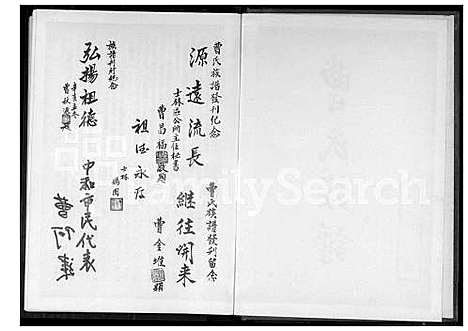 曹氏族譜發刊紀念
源遠流長
士林區公所主任秘書
曹昌福 敬題
曹氏族譜發刊留念
繼往開来
曹金堆 題
祖德永存
士林
族譜刊封紀念
弘揚祖德
曹秋
中和市民代表
曹阿
FamilySearch